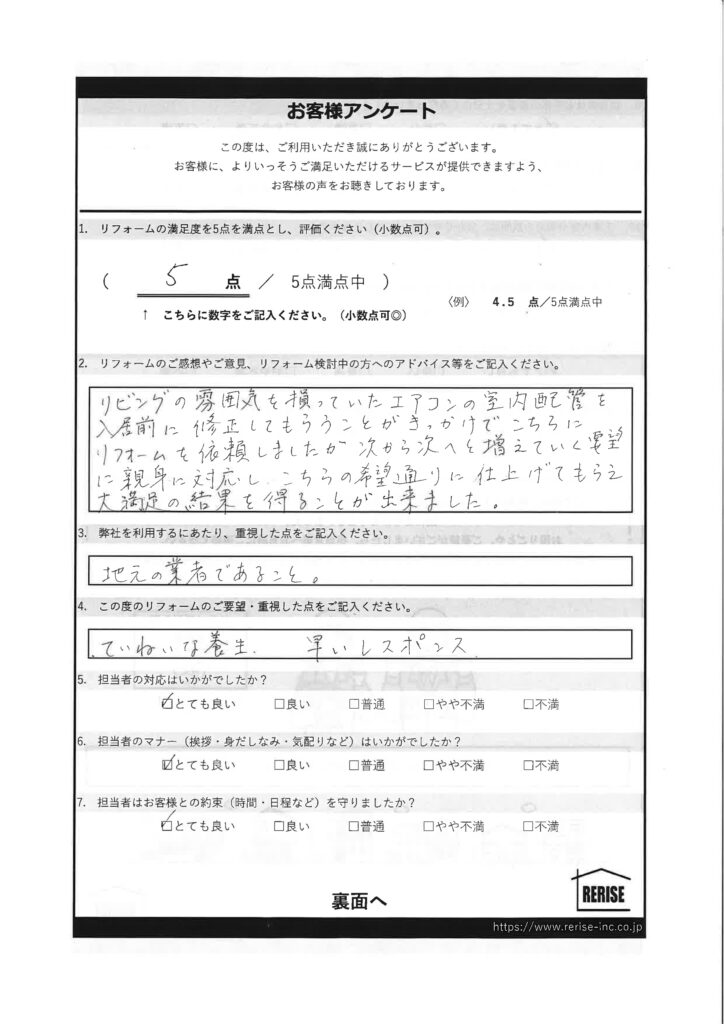 お客様アンケート
この度は、ご利用いただき誠にありがとうございます。
お客様に、よりいっそうご満足いただけるサービスが提供できますよう、
お客様の声をお聴きしております。
1. リフォームの満足度を5点を満点とし、評価ください（小数点可）。
（ 5 点 ／ 5点満点中 ）
〈例〉 4.5 点／5点満点中
↑ こちらに数字をご記入ください。（小数点可◎）
2. リフォームのご感想やご意見、リフォーム検討中の方へのアドバイス等をご記入ください。
リビングの雰囲気を損っていたエアコンの室内配管を
入居前に修正してもらうことがきっかけでこちらに
リフォームを依頼しましたが次から次へと増えていく要望
に親身に対応し、こちらの希望通りに仕上げてもらえ
大満足の結果を得ることが出来ました。
3. 弊社を利用するにあたり、重視した点をご記入ください。
地元の業者であること。
4. この度のリフォームのご要望・重視した点をご記入ください。
ていねいな養生. 早いレスポンス.
5. 担当者の対応はいかがでしたか？
☑とても良い □良い □普通 □やや不満 □不満
6. 担当者のマナー（挨拶・身だしなみ・気配りなど）はいかがでしたか？
☑とても良い □良い □普通 □やや不満 □不満
7. 担当者はお客様との約束（時間・日程など）を守りましたか？
☑とても良い □良い □普通 □やや不満 □不満
裏面へ
RERISE
https://www.rerise-inc.co.jp